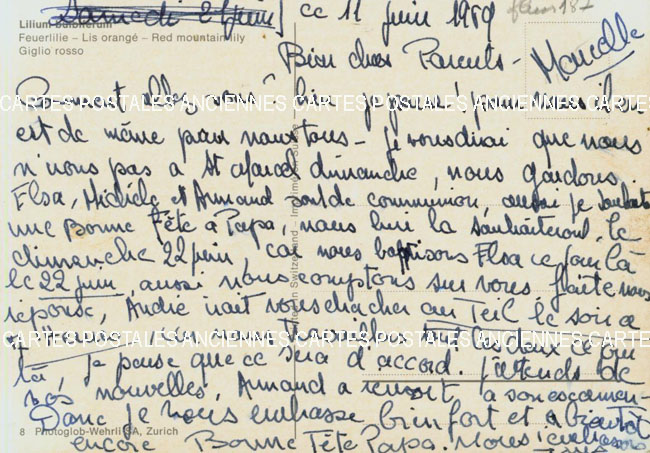 Samedi 2 juin ce 11 juin 1969
Lilium bulbiferum
Feuerlilie – Lis orangé – Red mountain lily
Giglio rosso
Bien chers Parents -
Marcelle
Comment allez vous? bien je pense! pour nous il
CARTES POSTALES ANCIENNES CARTES POSTALES ANCIENNES CARTES POSTALES ANCIENNES
est de même pour nous tous - je vous dirai que nous
n'irons pas à St Marcel dimanche, nous gardons
Elsa, Michèle et Armand sont de communion, aussi je souhaite
une Bonne Fête à Papa, nous lui la souhaiterons, le
dimanche 22 juin, car nous baptisons Elsa ce jour là
le 22 juin, aussi nous comptons sur vous, faite nous
réponse, André irait vous chercher au Teil le soir
CARTES POSTALES ANCIENNES CARTES POSTALES ANCIENNES CARTES POSTALES ANCIENNES
là, je pense que ce sera d'accord. j'attends de
vos nouvelles, Armand a
Donc je vous embrasse bien fort et à bientôt
8 Photoglob-Wehrli SA, Zurich
encore Bonne Fête Papa.